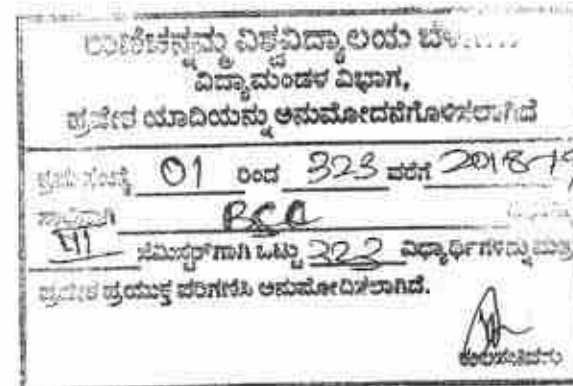 ರಾಣಿಚನ್ನಮ್ಮ ವಿಶ್ವವಿದ್ಯಾಲಯ
ವಿದ್ಯಾಮಂಡಳ ವಿಭಾಗ,
ಪ್ರವೇಶ ಯಾದಿಯನ್ನು ಅನುಮೋದನೆಗೊಳಿಸಲಾಗಿದೆ
ಕ್ರಮ ಸಂಖ್ಯೆ 01 ರಿಂದ 323 ವರೆಗೆ 2018-19
BCA
III ಸೆಮಿಸ್ಟರ್‌ಗಾಗಿ ಒಟ್ಟು 323 ವಿಧ್ಯಾರ್ಥಿಗಳನ್ನು ಮಾತ್ರ
ಪ್ರವೇಶ ಪ್ರಯುಕ್ತ ಪರಿಗಣಿಸಿ ಅನುಮೋದಿಸಲಾಗಿದೆ.
ಕುಲಸಚಿವರು